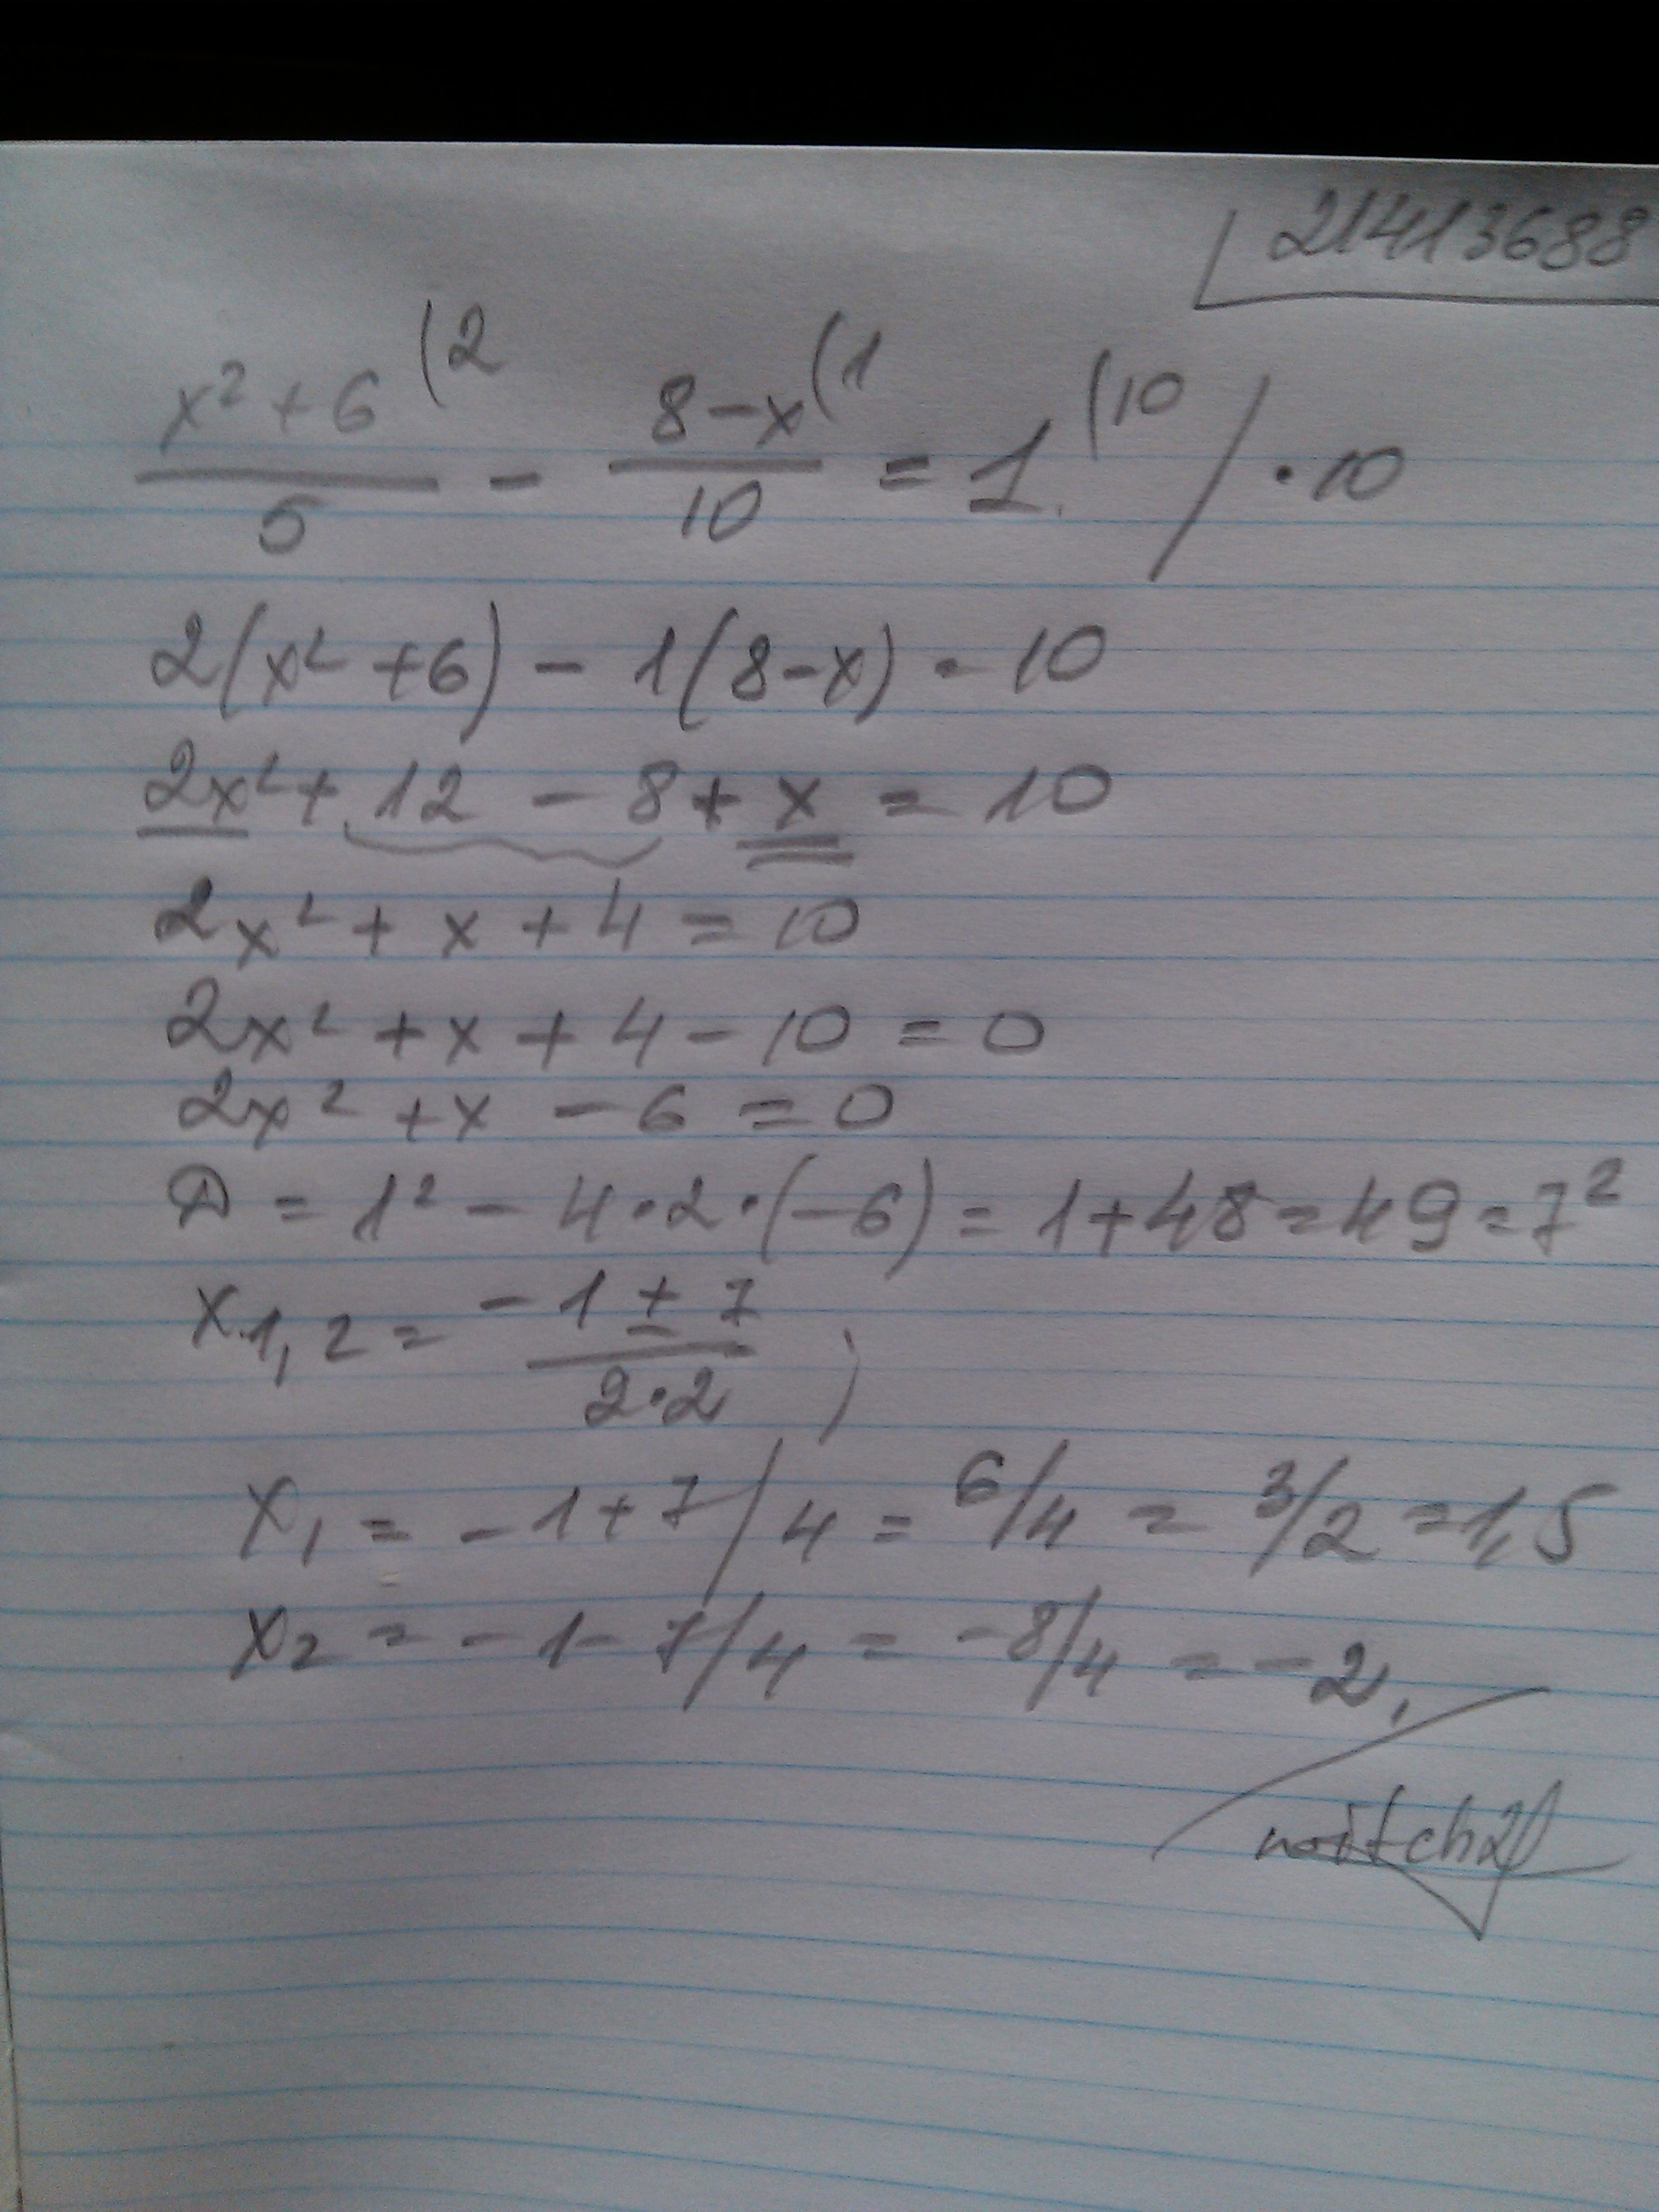 21413688
x² + 6 (2 / 5 - 8 - x (1 / 10 = 1 (10 / · 10
2(x² + 6) - 1(8 - x) = 10
2x² + 12 - 8 + x = 10
2x² + x + 4 = 10
2x² + x + 4 - 10 = 0
2x² + x - 6 = 0
D = 1² - 4 · 2 · (-6) = 1 + 48 = 49 = 7²
x1,2 = -1 ± 7 / 2·2 ;
x1 = -1 + 7 / 4 = 6/4 = 3/2 = 1,5
x2 = -1 - 7/4 = -8/4 = -2.